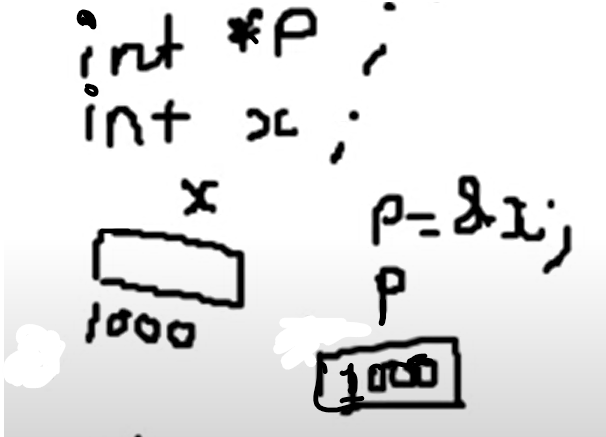 int *p ;
int x ;
x
p=&x;
1000
p
1000